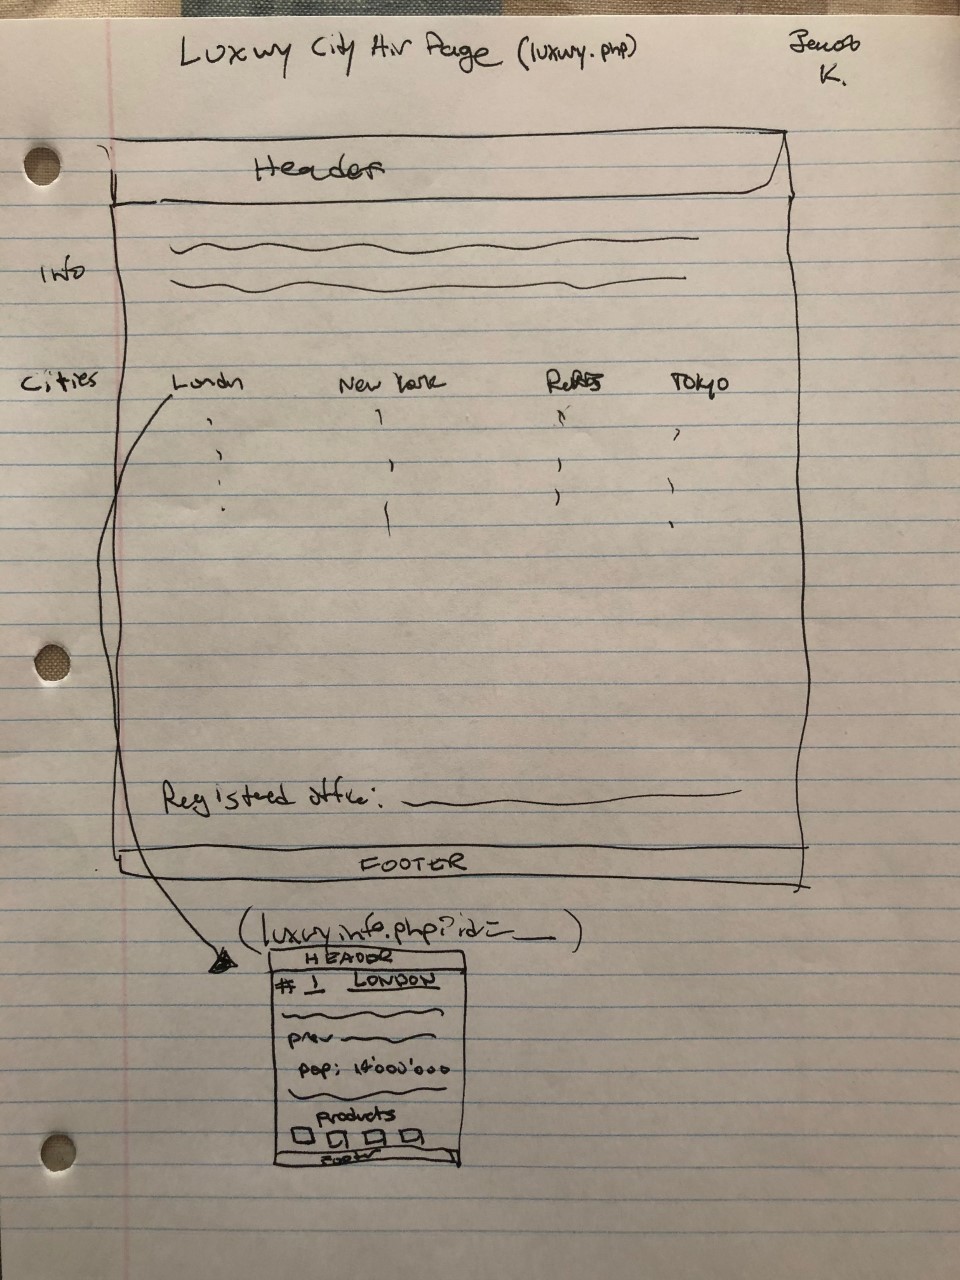 Luxury City Air Page (luxury.php)
Jacob
K.
Header
Info
Cities London New York Paris Tokyo
Registered office:
FOOTER
(luxury info.php?id=__)
HEADER
# 1 LONDON
prev
pop: 14'000'000
products
FOOTER